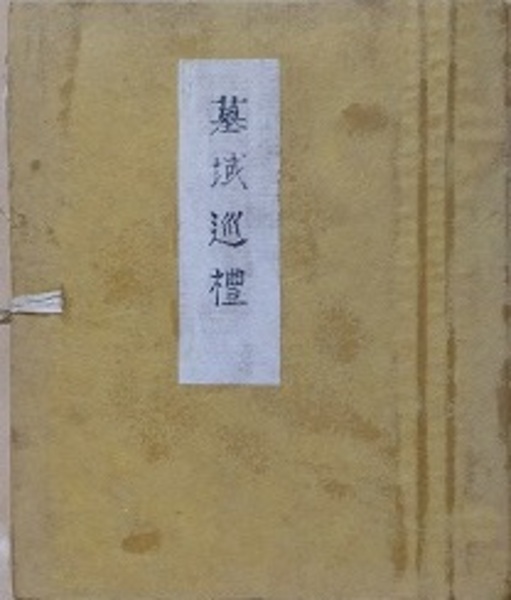 墓域巡禮